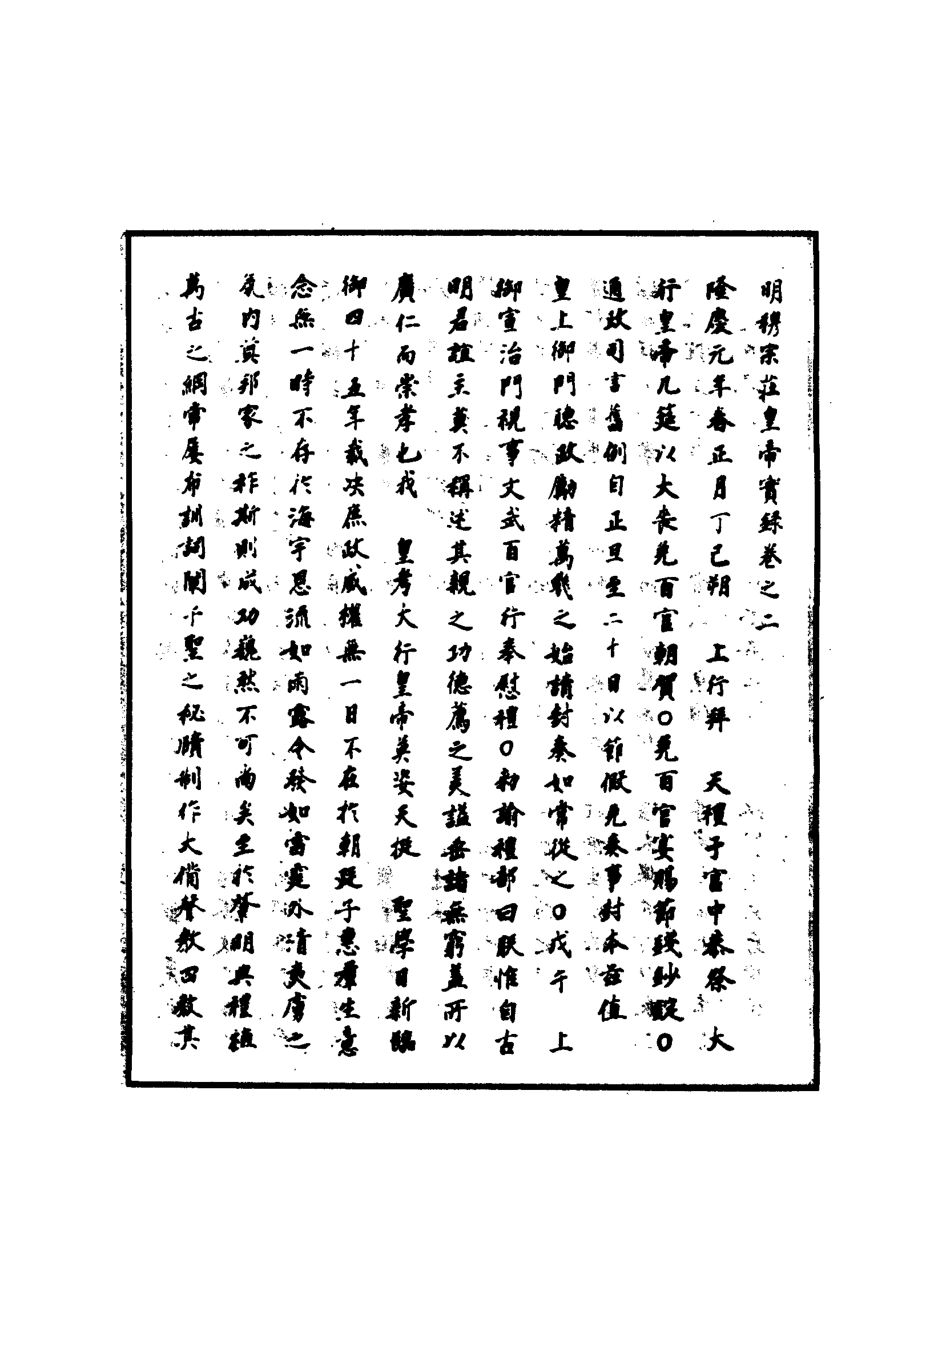 明穆宗莊皇帝實錄卷之二
隆慶元年春正月丁巳朔　上行拜　天禮于宮中恭祭　大
行皇帝几筵以大喪免百官朝賀○免百官宴賜節錢鈔錠○
通政司言舊例自正旦至二十日以節假免奏事封本茲值
皇上御門聽政勵精萬幾之始請封奏如常從之○戊午　上
御宣治門視事文武百官行奉慰禮○勑諭禮部曰朕惟自古
明君誼主莫不稱述其親之功德薦之美謚垂諸無窮蓋所以
廣仁而崇孝也我　皇考大行皇帝英姿天挺　聖學日新臨
御四十五年裁決庶政威權無一日不在於朝廷子惠羣生意
念無一時不存於海宇恩流如雨露令發如雷霆外清夷虜之
氛內奠邦家之祚斯則成功巍然不可尚矣至於肇明典禮植
萬古之綱常屢布訓詞闡千聖之秘賾制作大備聲教四敷其